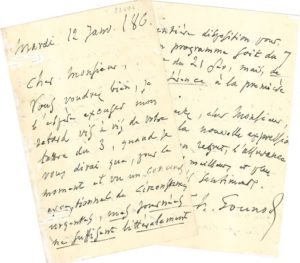 Mardi 12 Janv. 186
Cher Monsieur,
Vous voudrez bien, je
l'espère excuser mon
retard vis à vis de votre
lettre du 3, quand je
vous dirai que, pour le
moment et vu un concours
exceptionnel de circonstances
urgentes, mes journées
ne suffisent littéralement
entière disposition pour
programme soit du 7
du 21 fév, mais, de
à la première
cher Monsieur,
la nouvelle expression
regret, l'assurance
meilleurs et
sentiments.